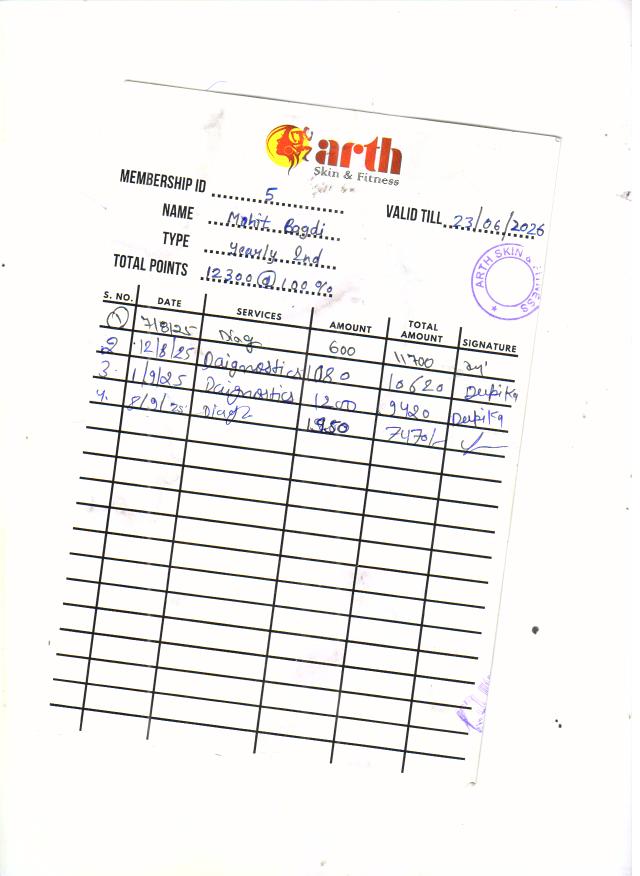 arth
Skin & Fitness
MEMBERSHIP ID 5
VALID TILL 23/06/2026
NAME Mohit Bagdi
TYPE Yearly 2nd
TOTAL POINTS 12300 @ 100%
ARTH SKIN & FITNESS
S. NO. DATE SERVICES AMOUNT TOTAL AMOUNT SIGNATURE
1 7/8/25 Diag 600 11700
2 12/8/25 Daignostics 1080 10620 Deepika
3. 1/9/25 Daignostics 1200 9420 Deepika
4. 8/9/25 Diag 1950 7470/-